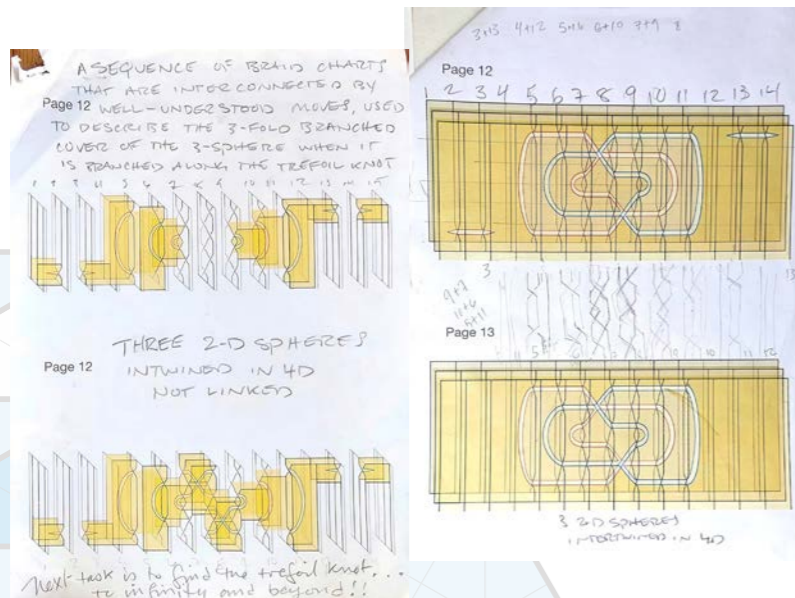 A SEQUENCE OF BRAID CHARTS
THAT ARE INTERCONNECTED BY
Page 12 WELL-UNDERSTOOD MOVES, USED
TO DESCRIBE THE 3-FOLD BRANCHED
COVER OF THE 3-SPHERE WHEN IT
IS BRANCHED ALONG THE TREFOIL KNOT
THREE 2-D SPHERES
Page 12 INTWINED IN 4D
NOT LINKED
Next task is to find the trefoil knot...
to infinity and beyond!!
3+13 4+12 5+11 6+10 7+9 8
Page 12
1 2 3 4 5 6 7 8 9 10 11 12 13 14
3 13
9+7
11+6
5+11
Page 13
3 2D SPHERES
INTERTWINED IN 4D